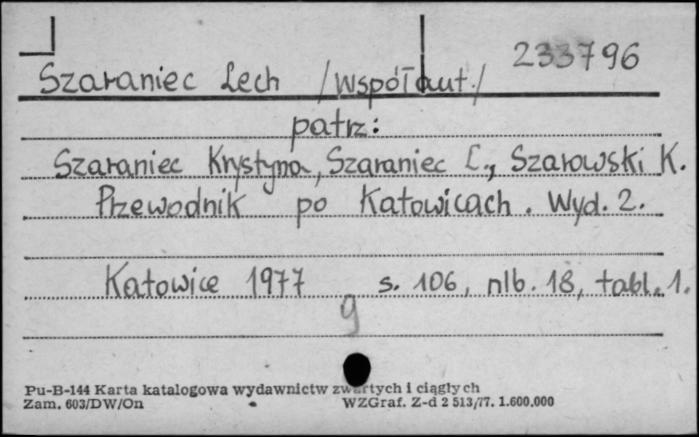 233796
Szaraniec Lech /współaut./
patrz:
Szaraniec Krystyna, Szaraniec L., Szarowski K.
Przewodnik po Katowicach. Wyd. 2.
Katowice 1977 s. 106, nlb. 18, tabl. 1.
9
Pu-B-144 Karta katalogowa wydawnictw zwartych i ciągłych
Zam. 603/DW/On WZGraf. Z-d 2 513/77. 1.600.000